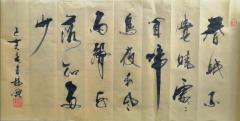 春眠不
覺曉處々
聞啼
鳥夜来風
雨聲花
落知多
少